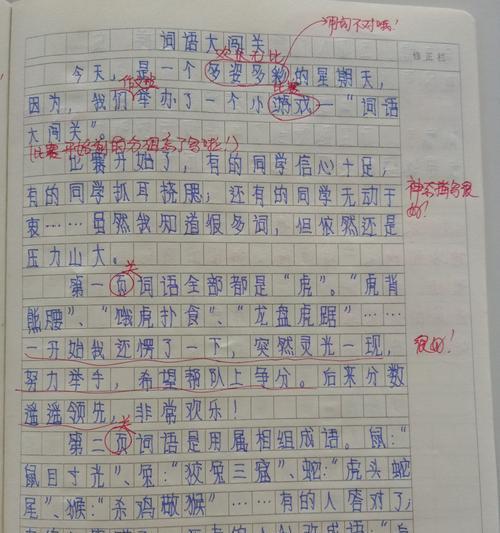 用词不对哦！
词语大闯关
修正栏
今天，是一个多姿多彩的星期天，
作文班
比赛
因为，我们举办了一个小游戏—“词语
大闯关”。
比赛开始了，有的同学信心十足，
有的同学抓耳挠腮；还有的同学无动于
衷……虽然我知道很多词，但依然还是
压力山大。
很好！
关
第一页词语全部都是“虎”。“虎背
熊腰”、“饿虎扑食”、“龙盘虎踞”……
一开始我还愣了一下，突然灵光一现，
很好！
努力举手，希望帮队上争分。后来分数
遥遥领先，非常欢乐！
关
第二页词语是用属相组成语。鼠：“
鼠目寸光”、兔：“狡兔三窟”、蛇：“虎头蛇
尾”、猴：“杀鸡儆猴”……有的人答对了；